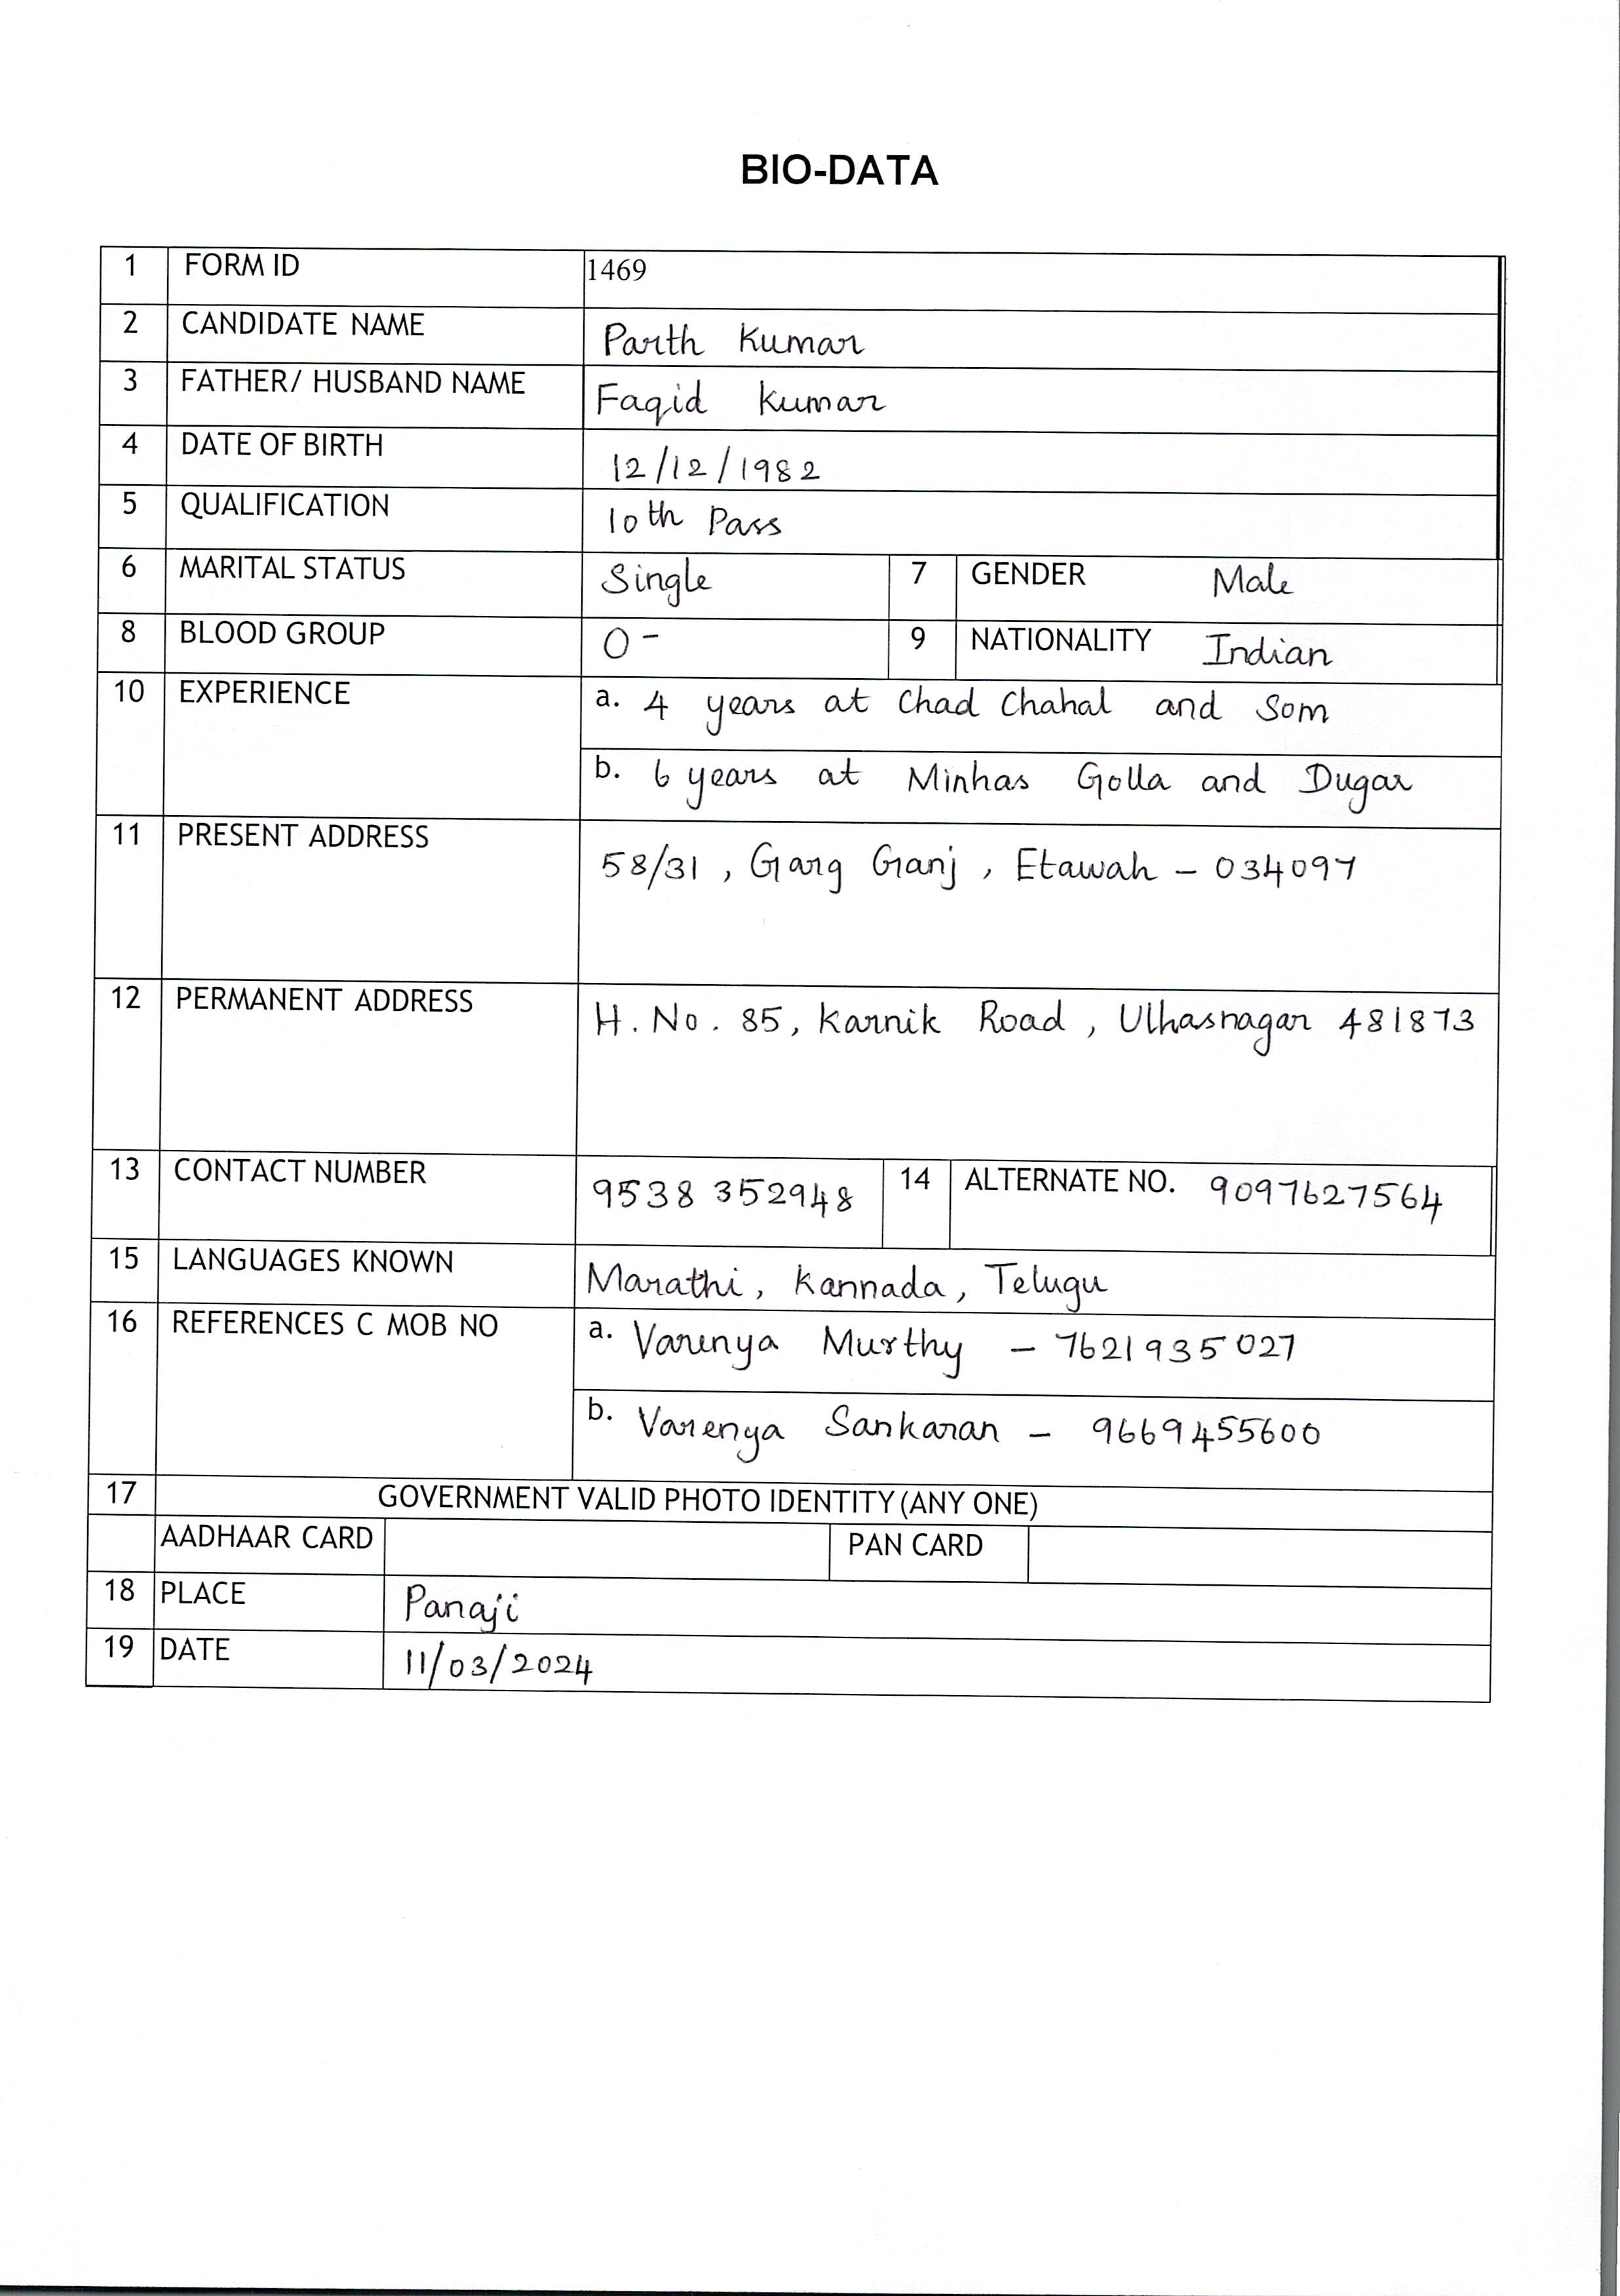 BIO-DATA
1 FORM ID 1469
2 CANDIDATE NAME Parth Kumar
3 FATHER/ HUSBAND NAME Faqid Kumar
4 DATE OF BIRTH 12/12/1982
5 QUALIFICATION 10th Pass
6 MARITAL STATUS Single 7 GENDER Male
8 BLOOD GROUP O- 9 NATIONALITY Indian
10 EXPERIENCE a. 4 years at Chad Chahal and Som
b. 6 years at Minhas Golla and Dugar
11 PRESENT ADDRESS 58/31, Garg Ganj, Etawah - 034097
12 PERMANENT ADDRESS H. No. 85, Karnik Road, Ulhasnagar 481873
13 CONTACT NUMBER 9538352948 14 ALTERNATE NO. 9097627564
15 LANGUAGES KNOWN Marathi, Kannada, Telugu
16 REFERENCES C MOB NO a. Varenya Murthy - 7621935027
b. Varenya Sankaran - 9669455600
17 GOVERNMENT VALID PHOTO IDENTITY (ANY ONE)
AADHAAR CARD PAN CARD
18 PLACE Panaji
19 DATE 11/03/2024